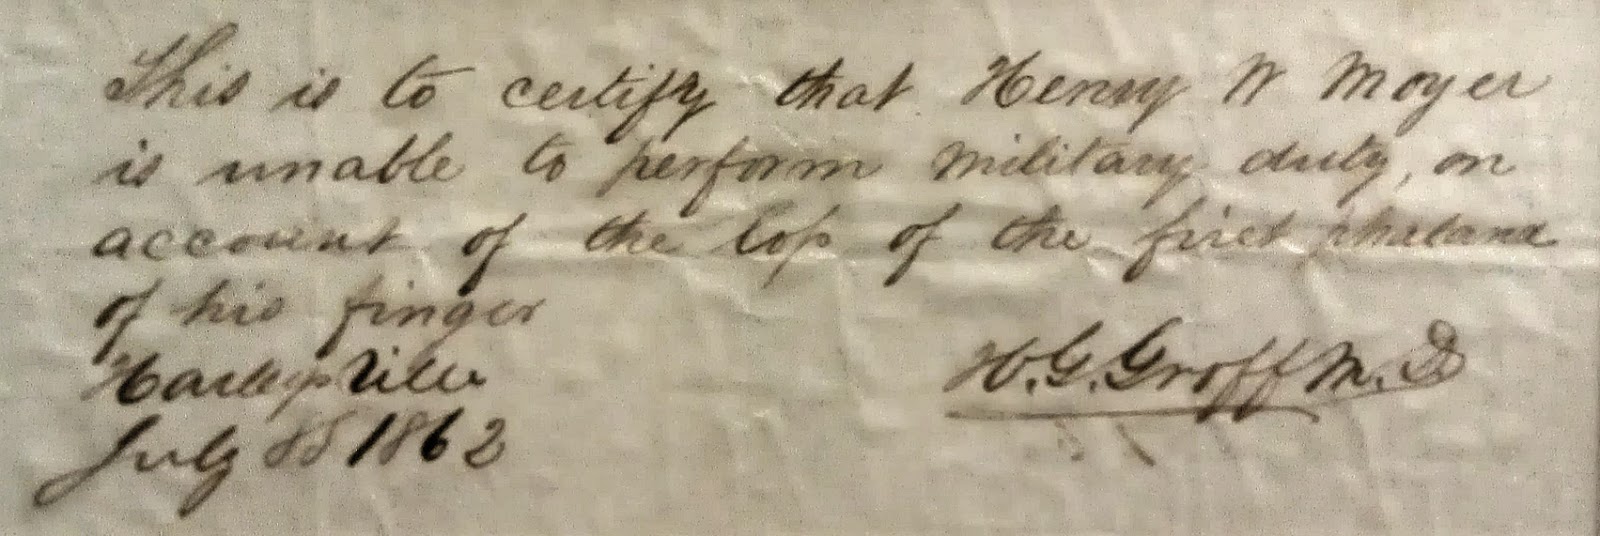 This is to certify that Henry W Moyer
is unable to perform military duty, on
account of the loss of the first phalanx
of his finger
Harleysville
July 1862
H. G. Groff M. D